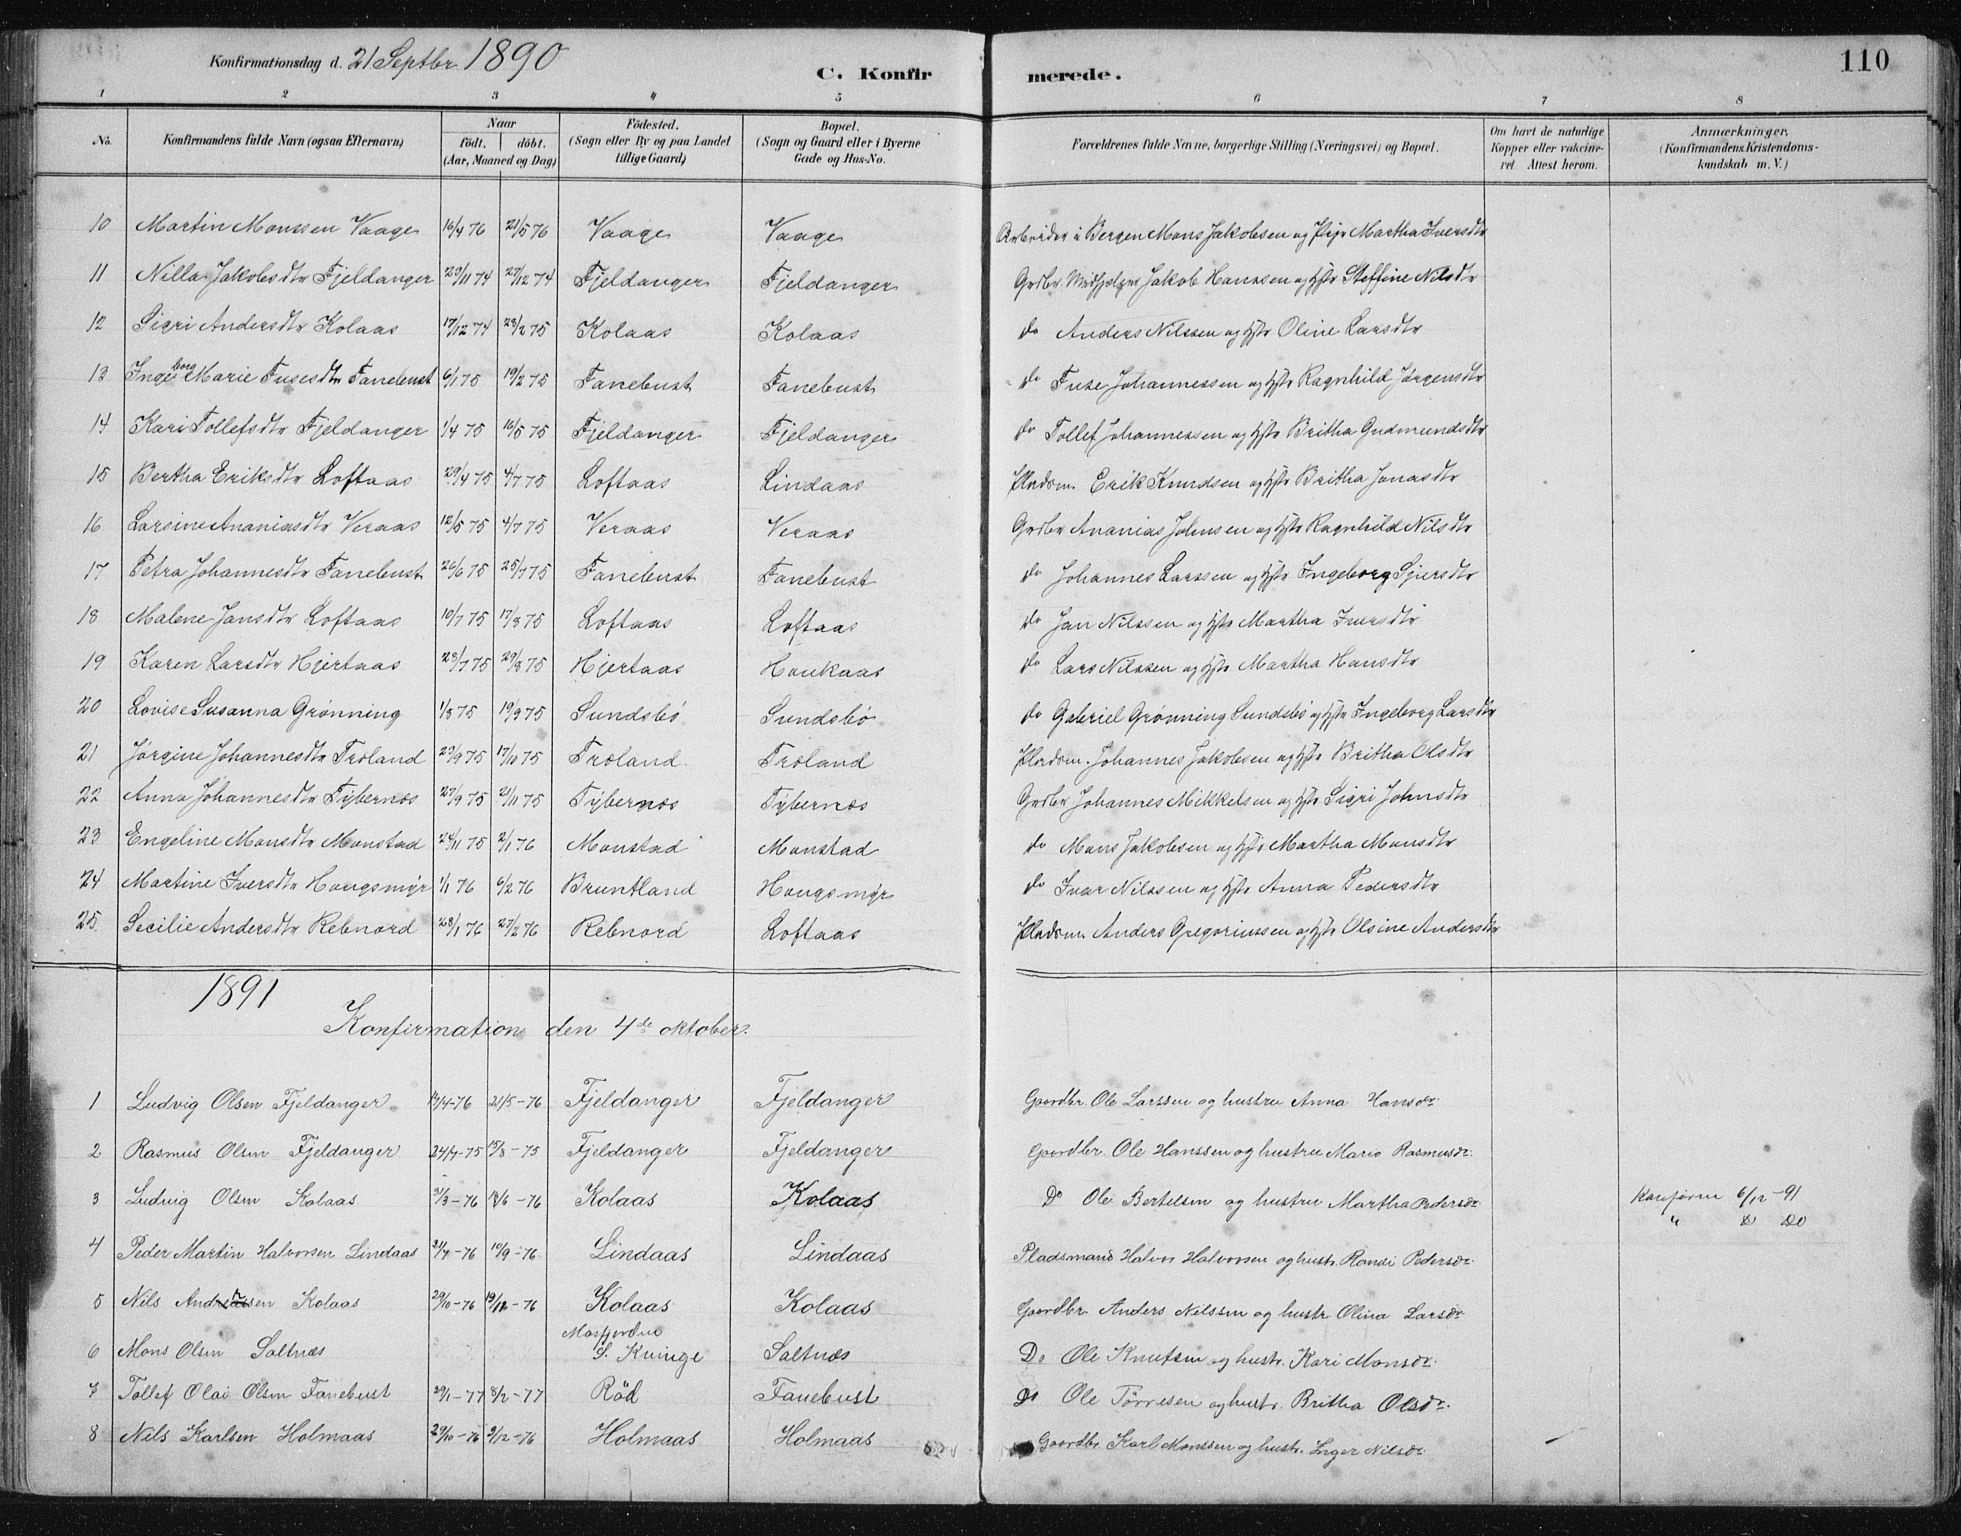 Konfirmationsdag d. 21 Septbr. 1890 C. Konfirmerede. 110
1 2 3 4 5 6 7 8
No. Konfirmandens fulde Navn (ogsaa Efternavn) Naar födt. döbt. (Aar, Maaned og Dag) Födested. (Sogn eller By og paa Landet tillige Gaard) Bopæl. (Sogn og Gaard eller i Byerne Gade og Hus-No. Forældrenes fulde Navne, borgerlige Stilling (Næringsvei) og Bopæl. Om havt de naturlige Kopper eller vakcineret. Attest herom. Anmærkninger. (Konfirmandens Kristendomskundskab m. V.)
10 Martin Monssen Vaage 16/4 76 21/5 76 Vaage Vaage Arbeider i Bergen Mons Jakobsen og Pige Martha Iversdtr
11 Nilla Jakobsdtr Fjeldanger 29/11 74 27/12 74 Fjeldanger Fjeldanger Grdbr. Jakob Hanssen og Hstr Steffine Nilsdtr
12 Sigri Andersdtr Kolaas 17/12 74 28/2 75 Kolaas Kolaas do Anders Nilssen og Hstr Oline Larsdtr
13 Ingeborg Marie Fusesdtr Fanebust 6/1 75 19/2 75 Fanebust Fanebust do Fuse Johannessen og Hstr Ragnhild Jørgensdtr
14 Kari Tollefsdtr Fjeldanger 1/4 75 16/5 75 Fjeldanger Fjeldanger do Tollef Johannessen og Hstr Britha Gudmundsdtr
15 Bertha Eriksdtr Loftaas 29/4 75 4/7 75 Loftaas Lindaas Pladsm. Erik Knudsen og Hstr Britha Jonasdtr
16 Larsine Ananiasdtr Veraas 12/5 75 4/7 75 Veraas Veraas Grdbr Ananias Johnsen og Hstr Ragnhild Nilsdtr
17 Petra Johannesdtr Fanebust 26/6 75 25/7 75 Fanebust Fanebust do Johannes Larssen og Hstr Ingeborg Sjursdtr
18 Malene Jansdtr Loftaas 10/7 75 17/8 75 Loftaas Loftaas do Jan Nilssen og Hstr Martha Iversdtr
19 Karen Larsdtr Hjertaas 23/7 75 29/8 75 Hjertaas Haukaas do Lars Nilssen og Hstr Martha Hansdtr
20 Lovise Susanna Grönning 1/8 75 19/9 75 Sundsbö Sundsbö do Gabriel Grönning Sundsbö og Hstr Ingeborg Larsdtr
21 Jørgine Johannesdtr Troland 29/9 75 17/10 75 Troland Troland Pladsm. Johannes Jakobsen og Hstr Britha Olsdtr
22 Anna Johannesdtr Fybernes 27/9 75 21/11 75 Fybernes Fybernes Grdbr Johannes Mikkelsen og Hstr Sigri Johnsdtr
23 Engeline Monsdtr Monstad 24/11 75 2/1 76 Monstad Monstad do Mons Jakobsen og Hstr Martha Monsdtr
24 Martine Iversdtr Haugsmyr 1/1 76 6/2 76 Bruntland Haugsmyr do Ivar Nilssen og Hstr Anna Pedersdtr
25 Secilie Andersdtr Rebnord 28/1 76 27/2 76 Rebnord Loftaas Pladsm. Anders Gregoriussen og Hstr Olsine Andersdtr
1891
Konfirmation den 4de oktober.
1 Ludvig Olsen Fjeldanger 14/4-76 21/5-76 Fjeldanger Fjeldanger Gaardbr. Ole Larssen og hustru Anna Hansdr.
2 Rasmus Olsen Fjeldanger 24/7-75 15/8-75 Fjeldanger Fjeldanger Gaardbr. Ole Hanssen og hustru Maria Rasmusdr.
3 Ludvig Olsen Kolaas 31/3-76 18/6-76 Kolaas Kolaas Do Ole Bertelsen og hustru Martha Pedersdr 6/12-91
4 Peder Martin Halvorsen Lindaas 31/7-76 10/9-76 Lindaas Lindaas Pladsmand Halvor Halvorsen og hustr. Randi Pedersdr. " Do Do
5 Nils Andersen Kolaas 29/10-76 19/12-76 Kolaas Kolaas Gaardbr. Anders Nilssen og hustr. Olina Larsdr
6 Mons Olsen Saltnæs Masfjorden S. Kvinge Saltnæs Do Ole Knutsen og hustr. Kari Monsdr.
7 Tollef Olai Olsen Fanebust 29/1-77 8/2-77 Röd Fanebust Do Ole Törresen og hustr. Britha Olsdr.
8 Nils Karlsen Holmaas 29/10-76 9/12-76 Holmaas Holmaas Gaardbr. Karl Monssen og hustr. Inger Nilsdr.